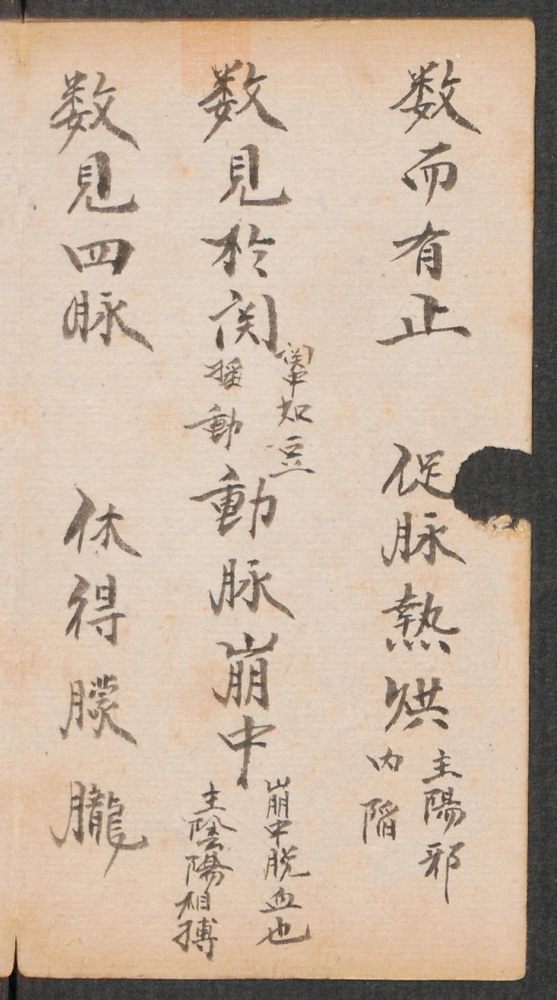 数而有止 促脉熱烘 主陽邪内陷
数見於関 関中如豆摇動 動脉崩中 崩中脱血也主陰陽相搏
数見四脉 休得朦朧